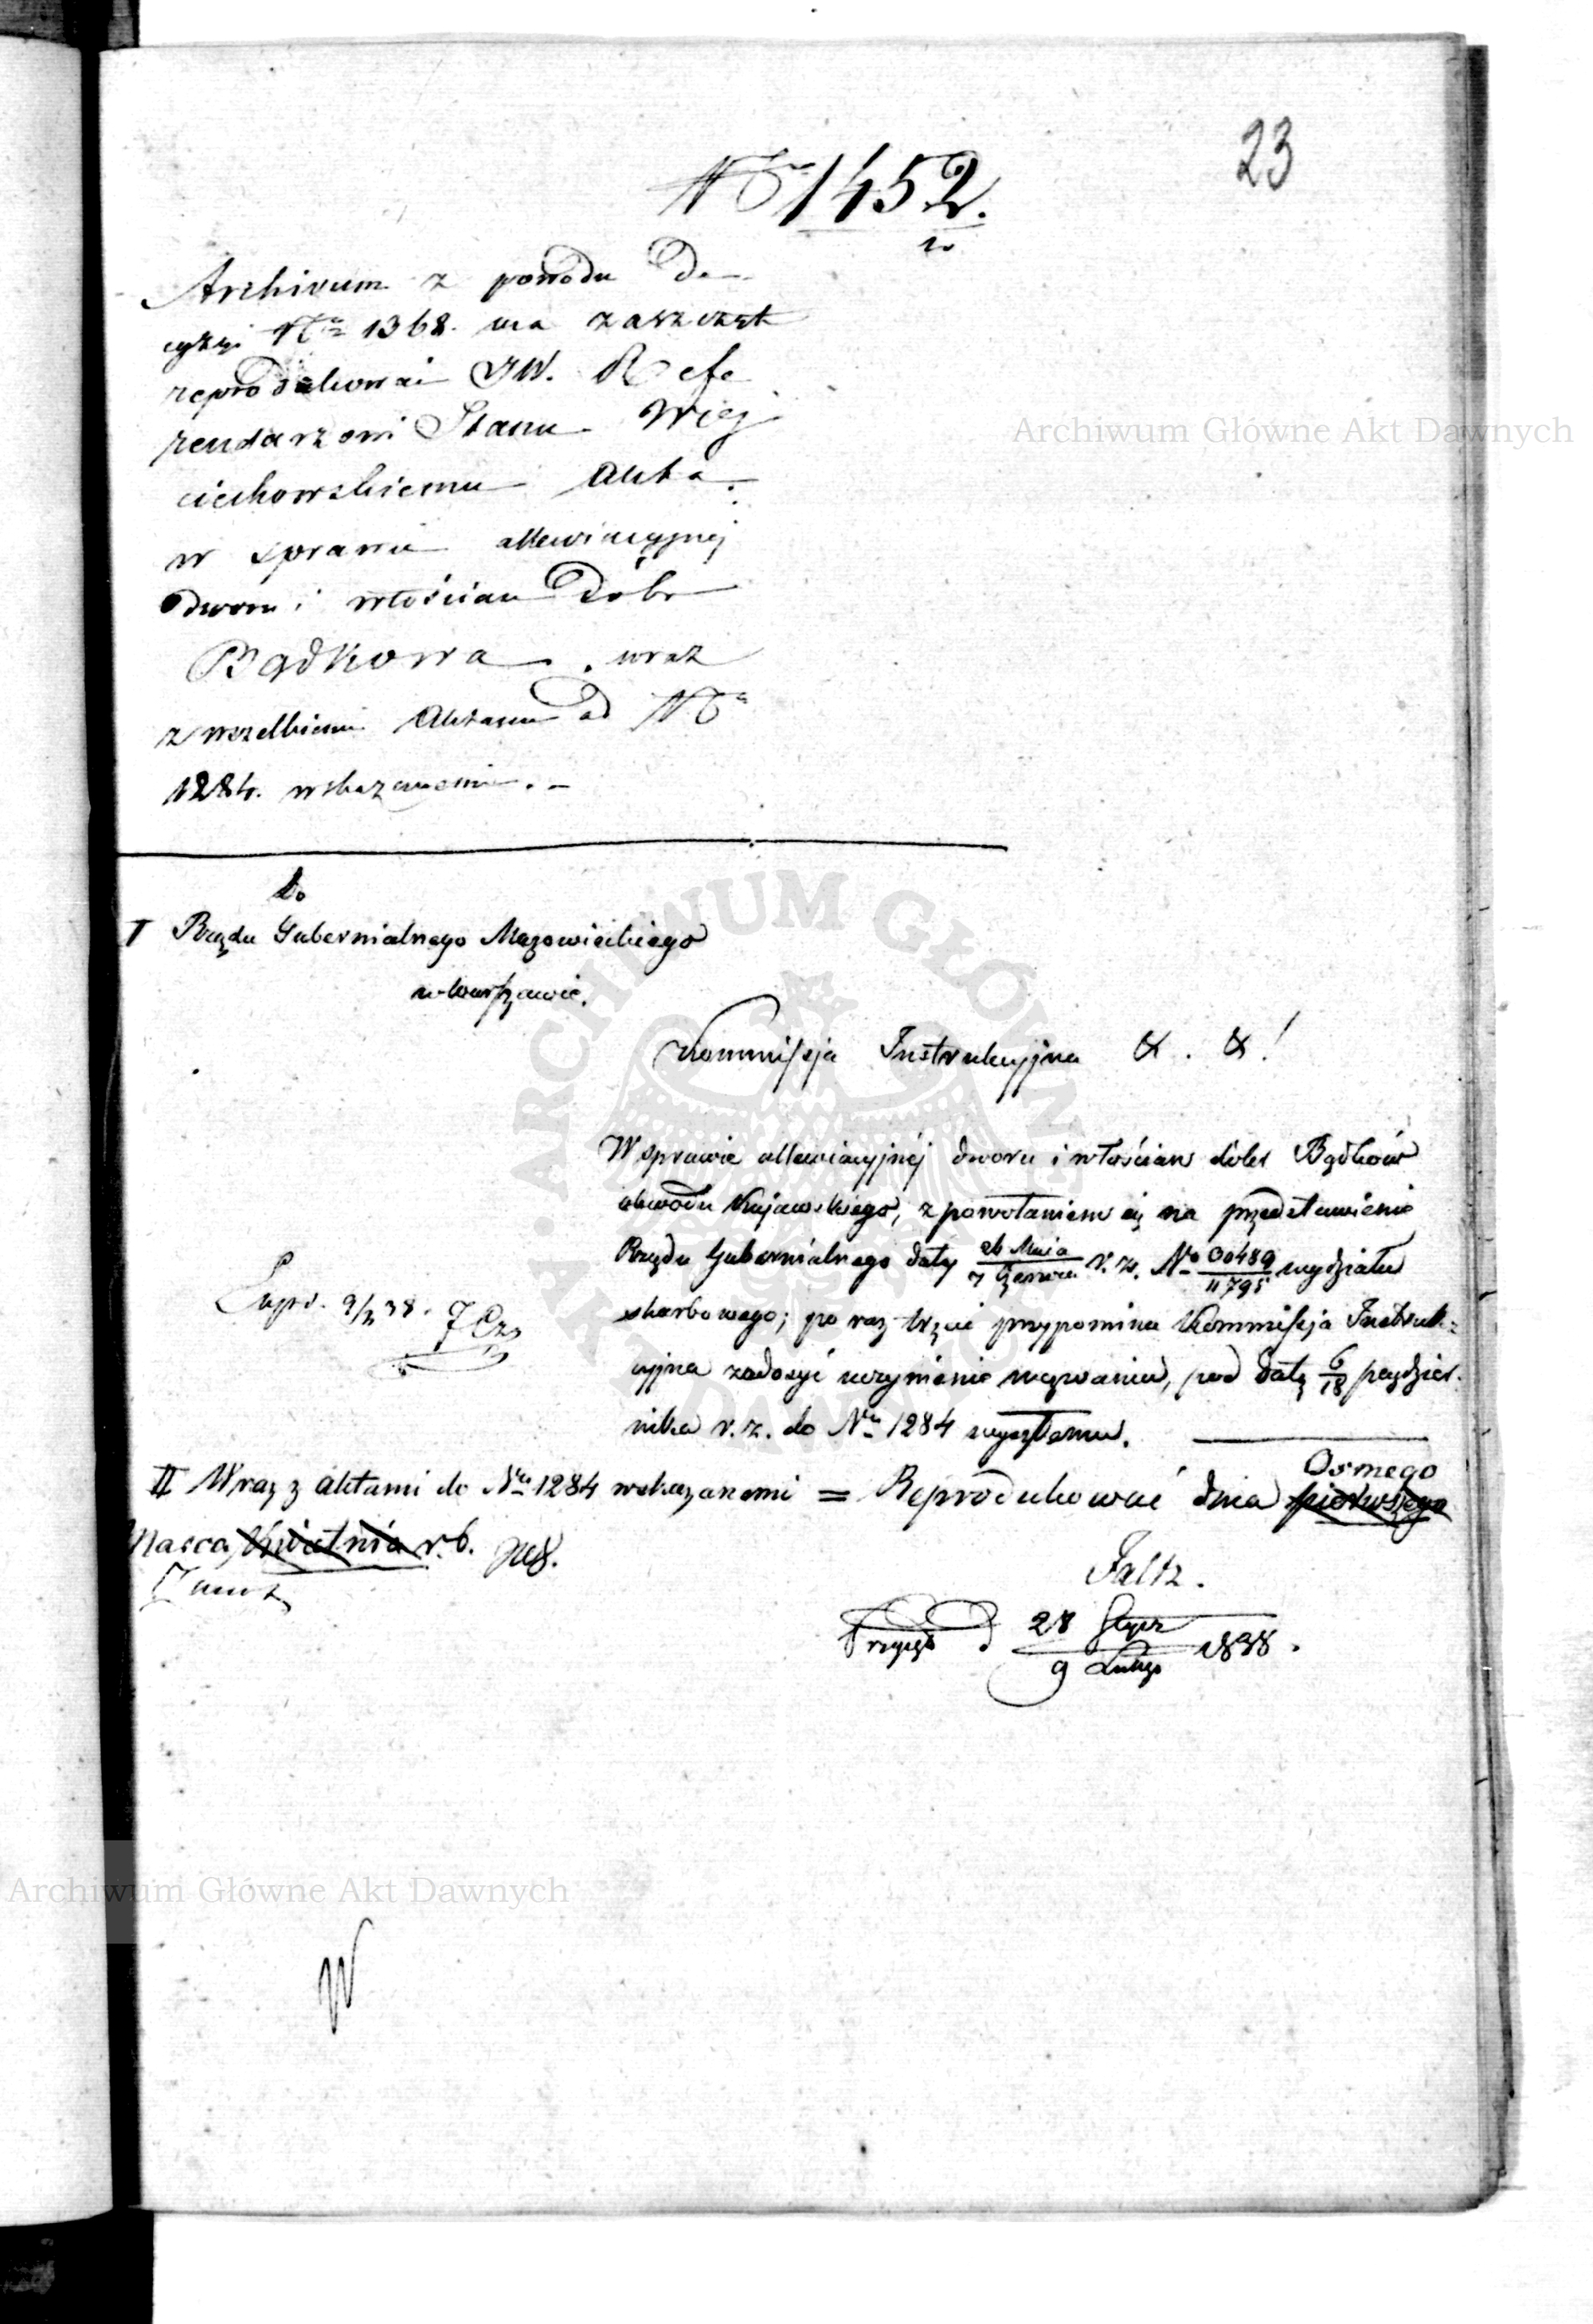 23
No 1452.
Archivum z powodu De-
cyzyi Nr 1368. ma zaszczyt
reprodukować JW. Refe
rendarzowi Stanu Woj
ciechowskiemu Akta
w sprawie allewiacyjnej
dworu i włościan dóbr
Bądkowa wraz
z wszelkiemi Aktami do Nr
1284. wskazanemi. -
Do
I Rządu Gubernialnego Mazowieckiego
w Warszawie.
Kommissja Instrukcyjna & . & !
W sprawie allewiacyjnéj dworu i włościan dóbr Bądków
obwodu Kujawskiego, z powołaniem się na przedstawienie
Rządu Gubernialnego daty 26 Maja / 7 Czerwca r. z. No 30489 / 11795 wydziału
skarbowego; po raz trzeci przypomina Kommissja Instruk-
cyjna zadosyć uczynienie wezwaniu, pod datą 6/18 paździer-
nika r. z. do Nr 1284 wysłanemu.
Osmego
II Wraz z aktami do Nru 1284 wskazanemi = Reprodukować dnia pierwszego
Marca Kwietnia r. b.
Faltz.
Przyjęto d 28 Stycz / 9 Lutego 1838.
Archiwum Główne Akt Dawnych
Archiwum Główne Akt Dawnych
ARCHIWUM GŁÓWNE AKT DAWNYCH